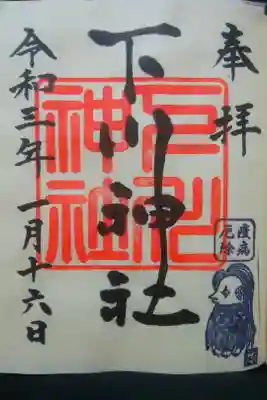 奉拝
下川神社
令和三年 一月十六日
神社
疫病
厄除